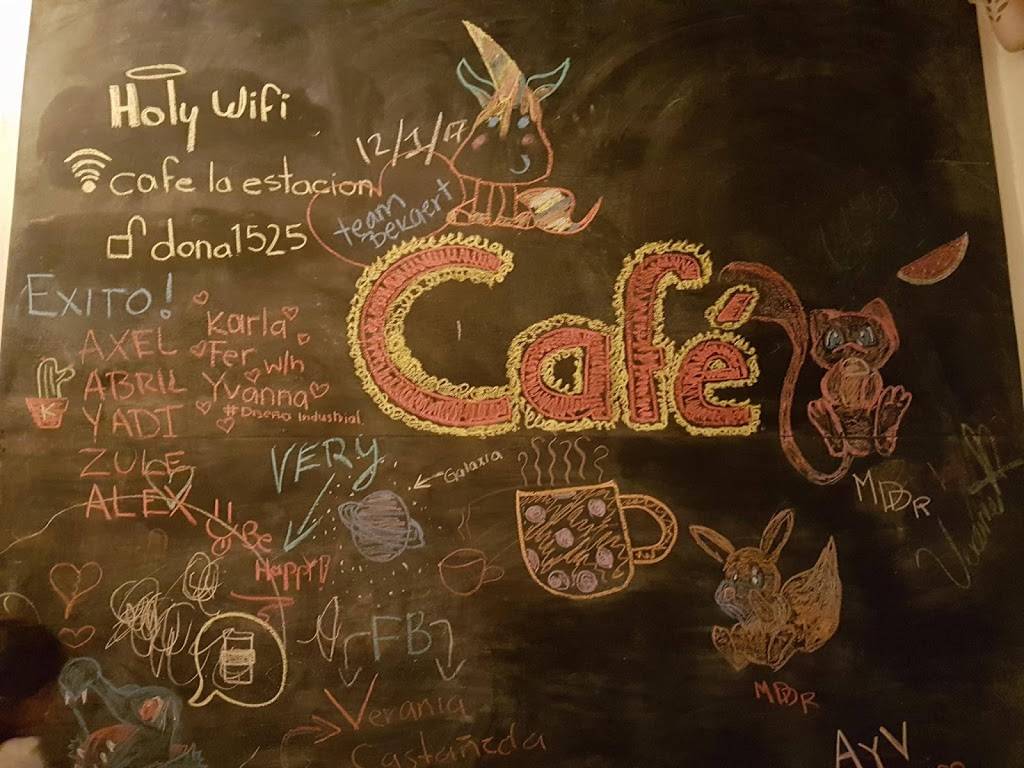 Holy Wifi
cafe la estacion
dona1525
12/1/17
team
Bekaert
Café
EXITO!
AXEL
ABRIL
YADI
ZULE
ALEX
Karla
Fer w/n
Yvanna
#Diseño Industrial
K
VERY
Galaxia
Be
Happy!
FB
Verania
Castañeda
MDDR
MDDR
AyV